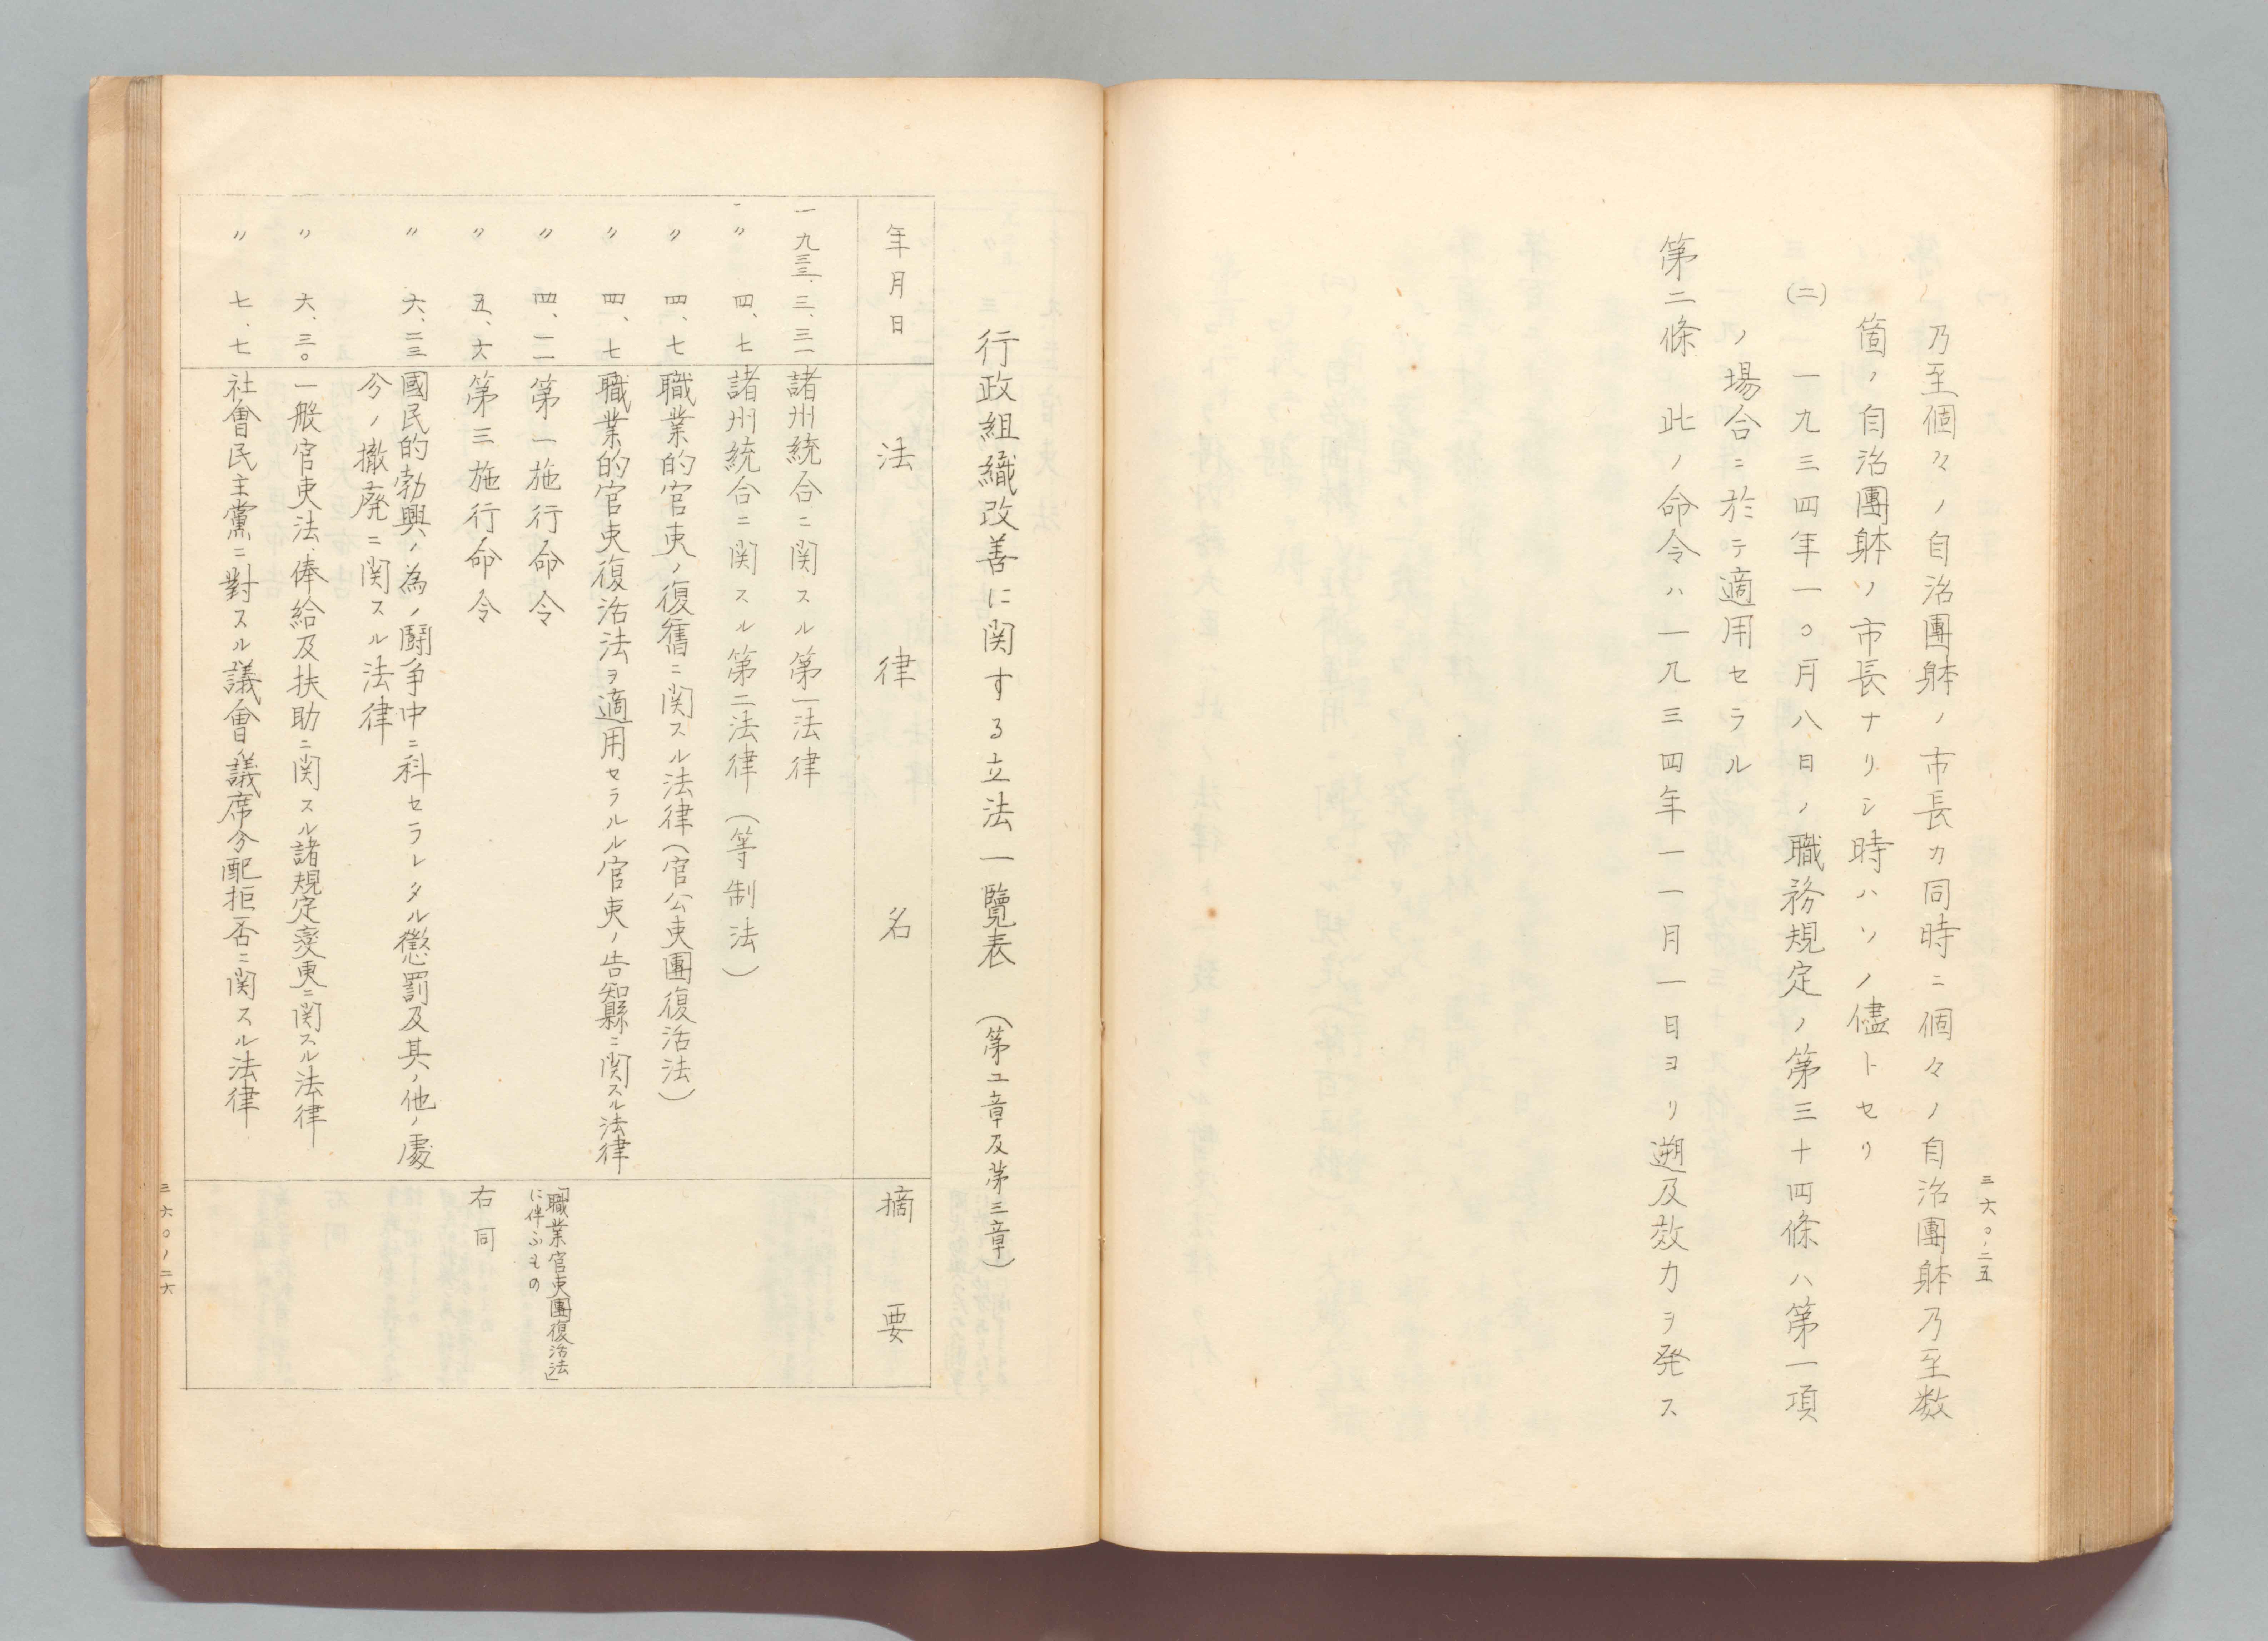 三六〇ノ二五
乃至個々ノ自治團躰ノ市長カ同時ニ個々ノ自治團躰乃至数
箇ノ自治團躰ノ市長ナリシ時ハソノ儘トセリ
(二) 一九三四年一〇月八日ノ職務規定ノ第三十四條ハ第一項
ノ場合ニ於テ適用セラル
第二條 此ノ命令ハ一九三四年一一月一日ヨリ遡及效力ヲ発ス
行政組織改善に関する立法一覽表 (第二章及第三章)
年月日 法律名 摘要
一九三三、三、三一 諸州統合ニ関スル第一法律
〃 四、七 諸州統合ニ関スル第二法律 (等制法)
〃 四、七 職業的官吏ノ復舊ニ関スル法律(官公吏團復活法)
〃 四、七 職業的官吏復活法ヲ適用セラルル官吏ノ告知縣ニ関スル法律
〃 四、一一 第一施行命令 「職業官吏團復活法」
に伴ふもの
〃 五、六 第三施行命令 右同
〃 六、二三 國民的勃興ノ為ノ闘争中ニ科セラレタル懲罰及其ノ他ノ處
分ノ撤廃ニ関スル法律
〃 六、三〇 一般官吏法、俸給及扶助ニ関スル諸規定変更ニ関スル法律
〃 七、七 社會民主黨ニ對スル議會議席分配拒否ニ関スル法律
三六〇ノ二六